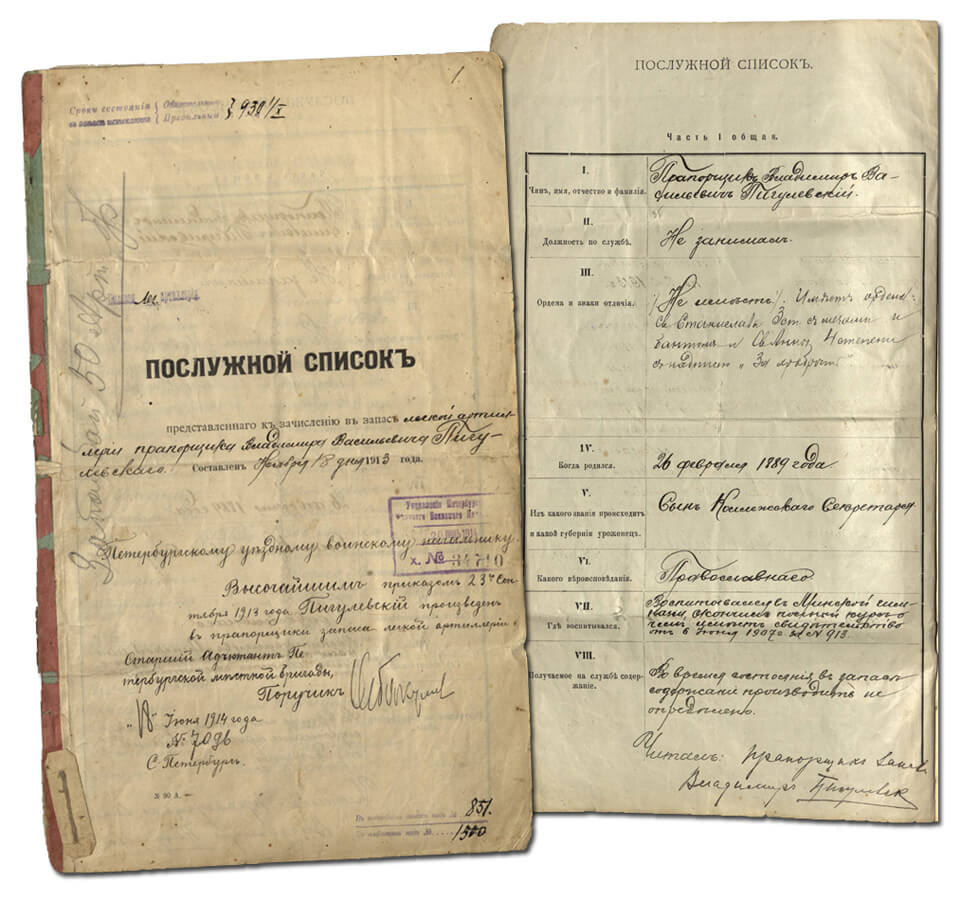 1
Сроки состоянія
Обязательно
Предѣльный
930 1/X
Запасной 50 Арт. Бр.
ПОСЛУЖНОЙ СПИСОКЪ
представленнаго къ зачисленію въ запасъ легкой артил-
леріи прапорщика Владиміра Васильевича Пигу-
левскаго. Составленъ Ноября 18 дня 1913 года.
Управленіе Петербург
х. № 34710
Петербургскому уѣздному воинскому начальнику.
Высочайшимъ приказомъ 23го Сен-
тября 1913 года Пигулевскій произведенъ
въ прапорщики запаса легкой артиллеріи
Старшій Адъютантъ Пе-
тербургской мѣстной бригады,
Поручикъ
"18" Іюня 1914 года
№
С. Петербургъ.
№ 90 А.—
851.
1500
ПОСЛУЖНОЙ СПИСОКЪ.
Часть I общая.
I.
Чинъ, имя, отчество и фамилія.
Прапорщикъ Владиміръ Ва-
сильевичъ Пигулевскій.
II.
Должность по службѣ.
Не занималъ.
III.
Ордена и знаки отличія.
(Не имѣетъ). Имѣетъ ордена:
Св. Станислава 3 ст. съ мечами и
бантомъ и Св. Анны 4 степени
съ надписью „За храбрость"
IV.
Когда родился.
26 февраля 1889 года.
V.
Изъ какого званія происходитъ
и какой губерніи уроженецъ.
Сынъ Коллежскаго Секретаря
VI.
Какого вѣроисповѣданія.
Православнаго.
VII.
Гдѣ воспитывался.
Воспитывался въ Минской гим-
назіи, окончилъ полный курсъ о
чемъ имѣетъ свидѣтельство
отъ 6 іюня 1907 г. за № 913.
VIII.
Получаемое на службѣ содер-
жаніе.
Во время состоянія въ запасѣ
содержанія производить не
опредѣлено.
Читалъ: прапорщикъ запаса
Владиміръ Пигулевск